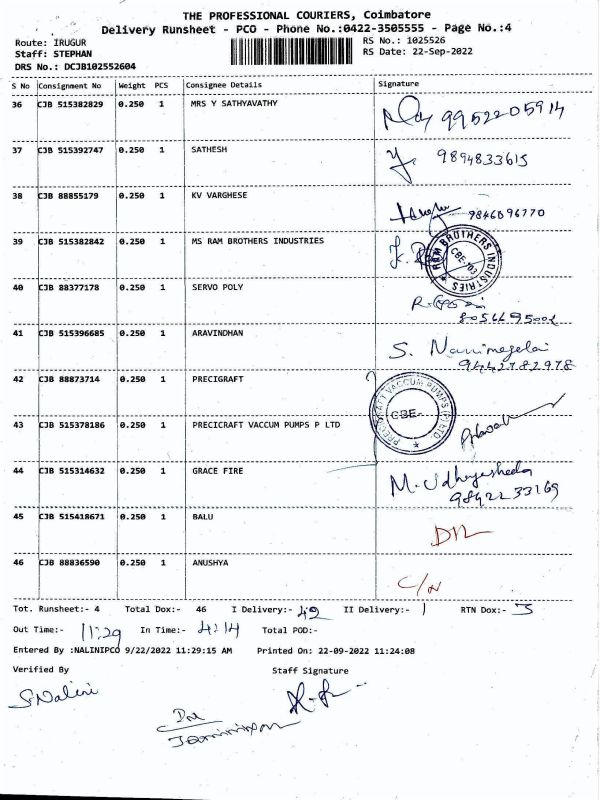 THE PROFESSIONAL COURIERS, Coimbatore
Delivery Runsheet - PCO - Phone No.:0422-3505555 - Page No.:4
Route: IRUGUR RS No.: 1025526
Staff: STEPHAN RS Date: 22-Sep-2022
DRS No.: DCJB102552604
S No Consignment No Weight PCS Consignee Details Signature
36 CJB 515382829 0.250 1 MRS Y SATHYAVATHY 9952205914
37 CJB 515392747 0.250 1 SATHESH 9894833615
38 CJB 88855179 0.250 1 KV VARGHESE 9846096770
39 CJB 515382842 0.250 1 MS RAM BROTHERS INDUSTRIES
RAM BROTHERS INDUSTRIES CBE-103
40 CJB 88377178 0.250 1 SERVO POLY
41 CJB 515396685 0.250 1 ARAVINDHAN S. Nanimegelai
9442782978
42 CJB 88873714 0.250 1 PRECIGRAFT
PRECICRAFT VACCUM PUMPS (P) LTD. CBE-
43 CJB 515378186 0.250 1 PRECICRAFT VACCUM PUMPS P LTD
44 CJB 515314632 0.250 1 GRACE FIRE
9842233169
45 CJB 515418671 0.250 1 BALU
46 CJB 88836590 0.250 1 ANUSHYA
Tot. Runsheet:- 4 Total Dox:- 46 I Delivery:- 42 II Delivery:- 1 RTN Dox:- 3
Out Time:- 11:29 In Time:- 4:14 Total POD:-
Entered By :NALINIPCO 9/22/2022 11:29:15 AM Printed On: 22-09-2022 11:24:08
Verified By Staff Signature
S.Nalini